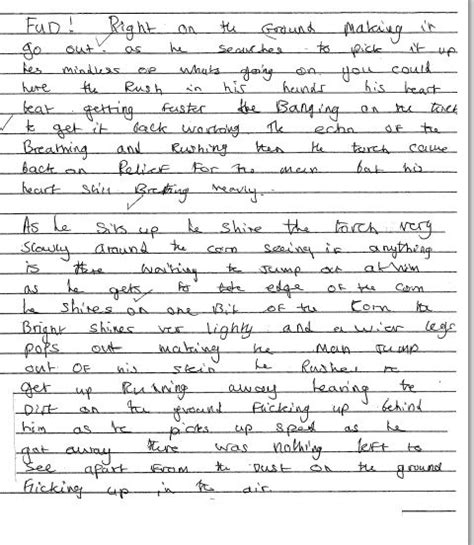 FUD! Right on the Ground Making it
go out. as he searches to pick it up
hes mindless of whats going on you could
here the Rush in his hands his heart
beat getting faster the Banging on the torch
to get it back working The echo of the
Breathing and Rushing then the torch came
back on Relief for the man but his
heart still Breathing heavily.
As he sits up he shine the torch very
slowly around the corn seeing if anything
is there waiting to Jump out at him
as he gets to the edge of the corn
he shines on one Bit of the Corn the
Bright shines ver lighly and a legs
pops out making the Man Jump
out of his skin he Rushes to
get up Running away leaving the
Dirt on the ground flicking up behind
him as he picks up speed as he
got away there was nothing left to
see apart from the Dust on the ground
flicking up in the air.